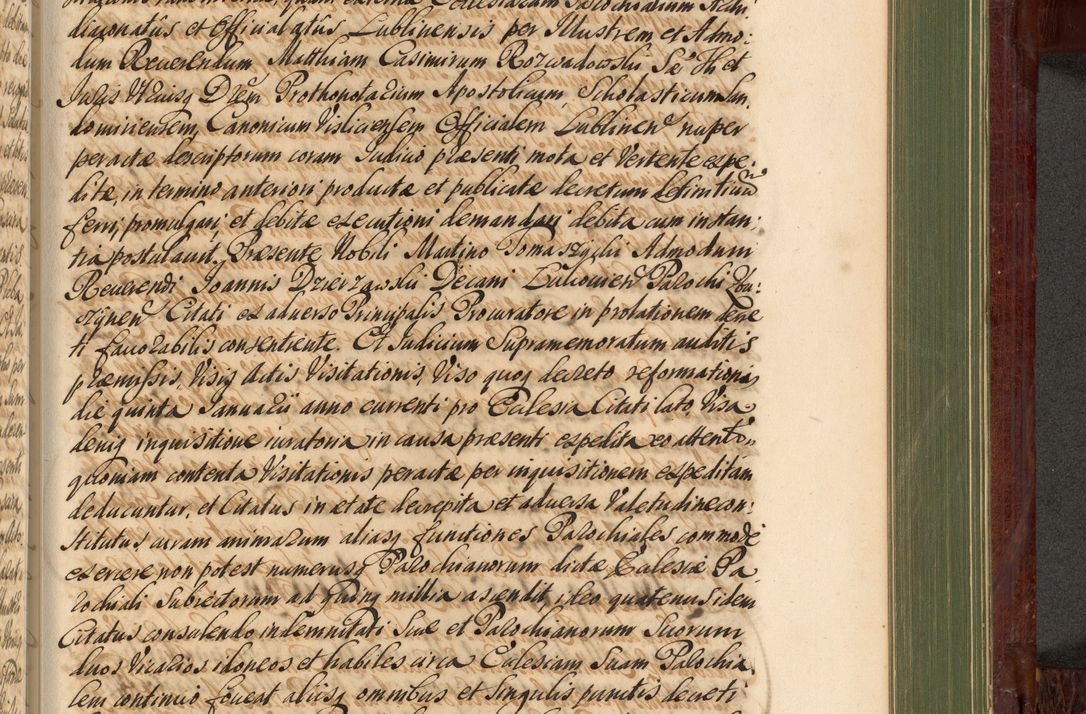 diaconatus et Officialatus Lublinensis per Illustrem et Admo:
dum Reverendum Matthiam Casimirum Rozwadowski Sē Th et
Juris Utriusq Drem Prothonotarium Apostolicum, Scholasticum San,
domiriensem, Canonicum Visliciensem Officialem Lublinen nuper
peractæ descriptorum coram Judicio præsenti mota et vertente expe,
ditæ, in termino anteriori productæ et publicatæ decretum definitivũ
ferri, promulgari, et debitæ executioni demandari debita cum instan,
tia postulavit. Præsente Nobili Martino Tomaszyski Admodum
Reverendi Joannis Dzierzawski Decani Lukovien Parochi
Citati ex adverso Principalis Procuratore in prolationem decre
ti favorabilis consentiente. Et Judicium Supramemoratum auditis
præmissis, Visis Actis Visitationis, Viso quoq decreto reformationis
die quinta Januarii anno currenti pro Ecclesia Citati lato, Visa
deniq inquisitione juratoria in causa præsenti expedita eo attento,
quoniam contenta Visitationis peractæ per inquisitionem expeditam
deducuntur, et Citatus in ætate decrepita et adversa Valetudine con,
stitutus curam animarum aliasq functiones Parochiales commode
exercere non potest numerusq Parochianorum dictæ Ecclesiæ Pa,
rochiali Subrectorum ad quinq millia ascendit, ideo quatenus idem
Citatus consulendo indemnitati Suæ et Parochianorum Suorum
duos Vicarios idoneos et habiles circa Ecclesiam Suam Parochia,
lem continuo foveat aliisq omnibus et Singulis punctis decreti